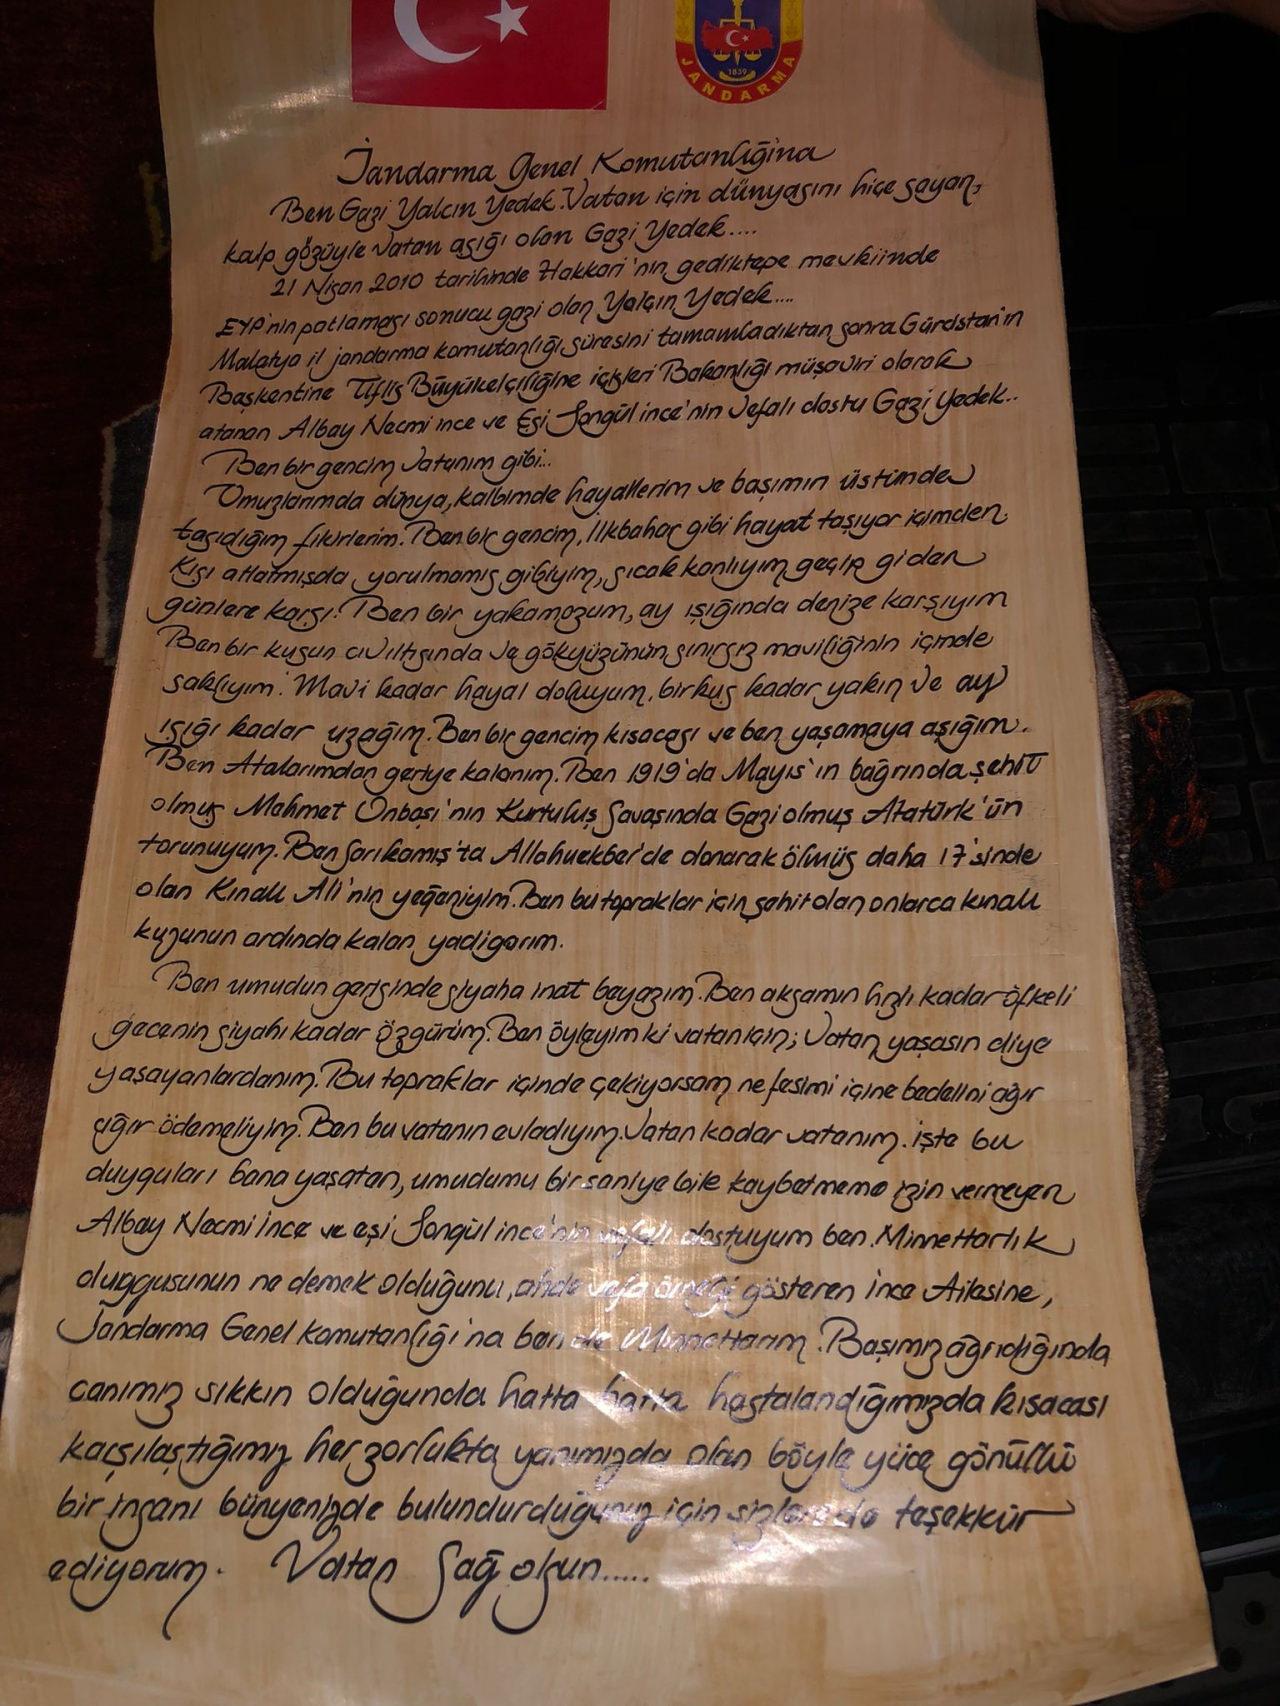 1839
JANDARMA
Jandarma Genel Komutanlığına
Ben Gazi Yalçın Yedek. Vatan için dünyasını hiçe sayan,
kalp gözüyle vatan aşığı olan Gazi Yedek....
21 Nisan 2010 tarihinde Hakkari'nin gediktepe mevkiinde
EYP'nin patlaması sonucu gazi olan Yalçın Yedek....
Malatya il jandarma komutanlığı süresini tamamladıktan sonra Gürcistan'ın
Başkentine Tiflis Büyükelçiliğine içişleri Bakanlığı müşaviri olarak
atanan Albay Necmi ince ve Eşi Songül ince'nin vefalı dostu Gazi Yedek..
Ben bir gencim Vatanım gibi...
Omuzlarımda dünya, kalbimde hayallerim ve başımın üstünde
taşıdığım fikirlerim. Ben bir gencim, Ilkbahar gibi hayat taşıyor içimden
Kışı atlatmışda yorulmamış gibiyim, sıcak kanlıyım geçip giden
günlere karşı! Ben bir yakamozum, ay ışığında denize karşıyım
Ben bir kuşun cıvıltısında ve gökyüzünün sınırsız maviliğinin içinde
saklıyım. Mavi kadar hayal doluyum, bir kuş kadar yakın ve ay
ışığı kadar uzağım. Ben bir gencim kısacası ve ben yaşamaya aşığım.
Ben Atalarımdan geriye kalanım. Ben 1919'da Mayıs'ın bağrında şehit
olmuş Mehmet Onbaşı'nın Kurtuluş Savaşında Gazi olmuş Atatürk'ün
torunuyum. Ben Sarıkamış'ta Allahuekber'de donarak ölmüş daha 17'sinde
olan Kınalı Ali'nin yeğeniyim. Ben bu topraklar için şehit olan onlarca kınalı
kuzunun ardında kalan yadigarım.
Ben umudun gerisinde siyaha inat beyazım. Ben akşamın hızlı kadar öfkeli
gecenin siyahı kadar özgürüm. Ben öyleyim ki vatan için; Vatan yaşasın diye
yaşayanlardanım. Bu topraklar içinde çekiyorsam nefesimi içine bedelini ağır
ağır ödemeliyim. Ben bu vatanın evladıyım. Vatan kadar vatanım. işte bu
duyguları bana yaşatan, umudumu bir saniye bile kaybetmeme izin vermeyen
Albay Necmi İnce ve eşi Songül ince'nin vefalı dostuyum ben. Minnettarlık
duygusunun ne demek olduğunu, ahde vefa örneği gösteren İnce Ailesine,
Jandarma Genel komutanlığı'na ben de Minnettarım. Başımız ağrıdığında
canımız sıkkın olduğunda hatta hatta hastalandığımızda kısacası
karşılaştığımız her zorlukta yanımızda olan böyle yüce gönüllü
bir insanı bünyenizde bulundurduğunuz için sizlere de teşekkür
ediyorum. Vatan Sağ olsun.....